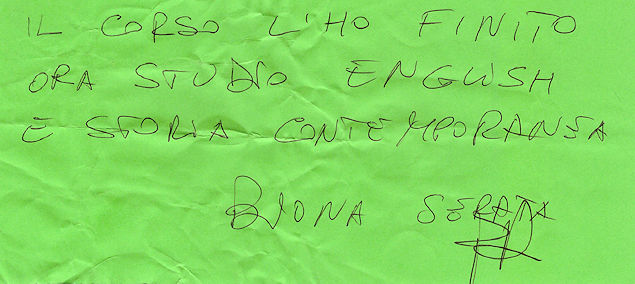 IL CORSO L'HO FINITO
ORA STUDIO ENGLISH
E STORIA CONTEMPORANEA
BUONA SERATA